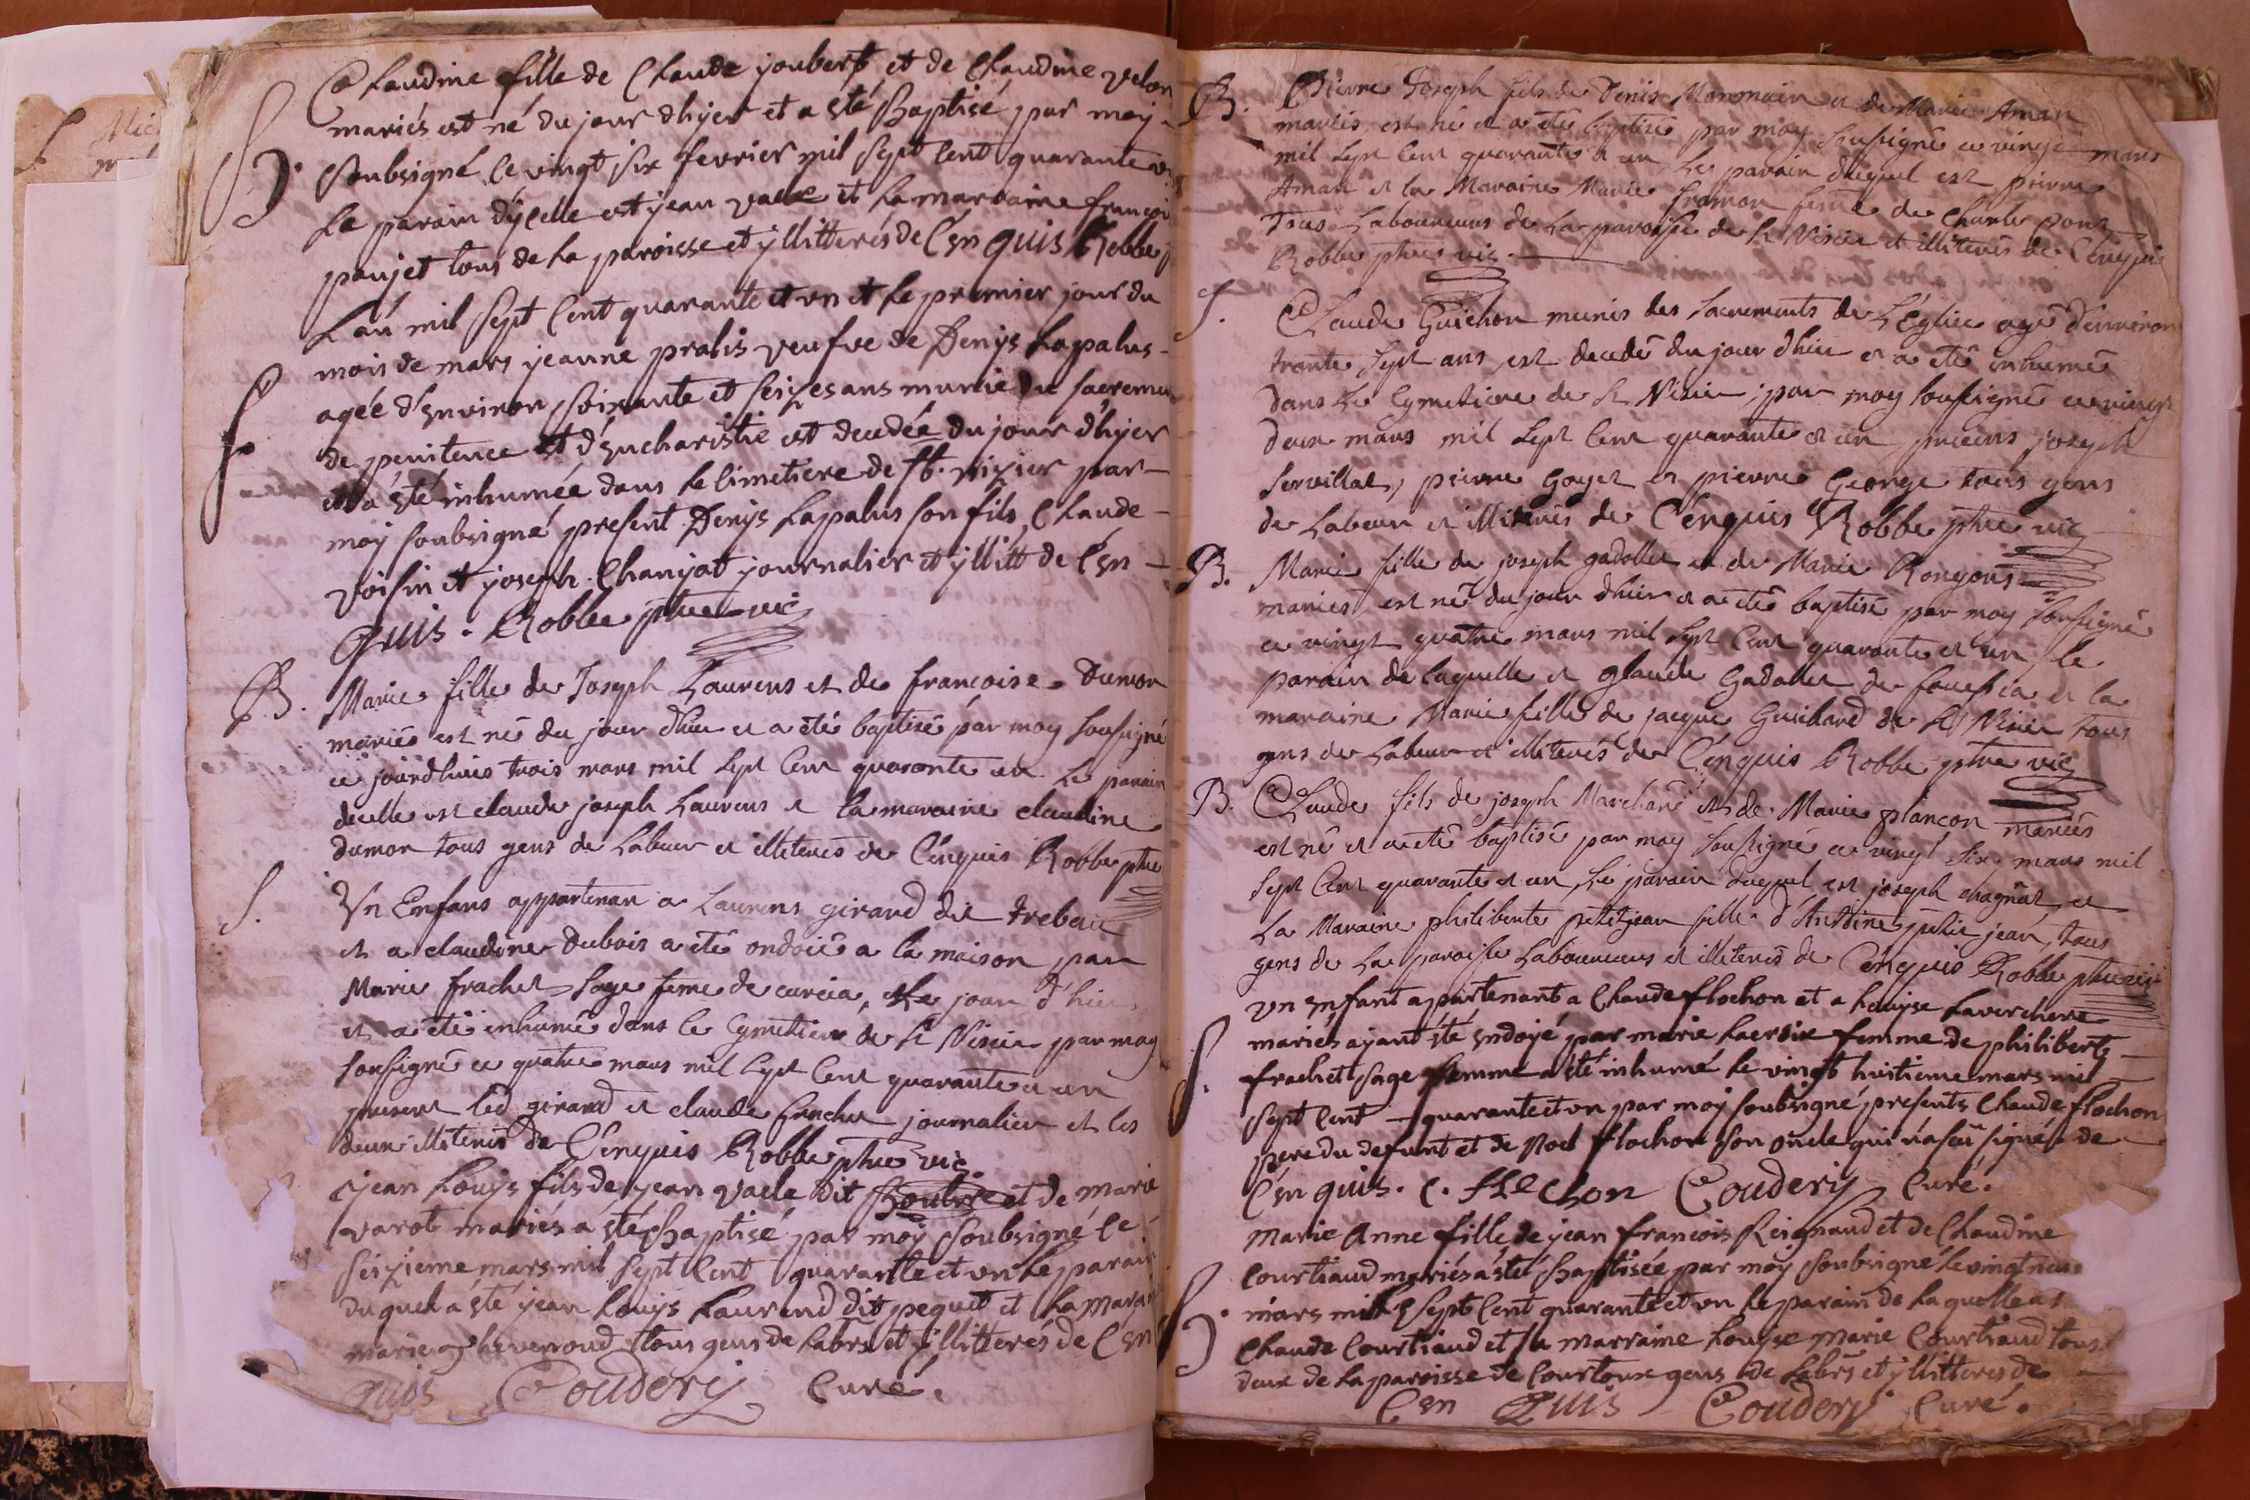 Claudine fille de Claude joubert et de Claudine velon
mariés est né du jour dhyer et a été Baptisé par moy
B. soubsigné le vingt six fevrier mil sept cent quarante
Le parain d'ycelle est jean vaele et La marraine françoi
paujet tous de La paroisse et yllitterés de Cen quis Robbe
L'an mil sept cent quarante et un et Le premier jour du
mois de mars jeanne pralis veufve de Denys Lapalus
agée d'environ soixante et seizes ans munie du sacremen
S de penitence et d'eucharistie est decedée du jour d'hyer
et a été inhumée dans Le cimetiere de St. nizier par
moy soubsigné present Denys Lapalus son fils, Claude
voisin et joseph Chanjot journalier et yllitt de Cen
quis. Robbe ptre vic
B. Marie fille de Joseph Laurens et de françoise Dumon
mariés est né du jour d'hier et a été baptisé par moy sousigné
ce jourdhuis trois mars mil sept cent quarante un Le parain
dicelle est claude joseph Laurens et la maraine claudine
dumon tous gens de Labeur et illiterés de Cenquis Robbe ptre
S. Un Enfans appartenan a Laurens girard dit trebau
et a claudine Dubois a été ondoié a la maison par
Marie frachet sage feme de curcia, le jour d'hier
et a été inhumé dans le Cymetiere de St Nisier par moy
sousigné ce quatre mars mil sept cent quarante et un
present led girard et claude frachet journalier et les
deux illiterés de Cenquis Robbe ptre vic.
jean Louys fils de jean vaele dit et de marie
varot mariés a été Baptisé par moy soubsigné le
seizieme mars mil sept cent quarante et un Le parain
du quel a été jean Louys Laurend dit pequet et La marai
marie tous gens de Labrs et yllitterés de Cen
quis Coudery Curé.
B. Pierre Joseph fils de Denis Monmain et de Marie Aman
mariés est né et a été baptisé par moy sousigné ce vingt mars
mil sept cent quarante et un Le parain duquel est pierre
Aman et la Maraine Marie fromon feme de Charle pont
tous Laboureurs de La paroisse de St Nisier et illiterés de Cenquis
Robbe ptre vic.
S. Claude Guichon munis des sacrements de L'Eglise agé d'environ
trante sept ans, est decedé du jour d'hier et a été inhumé
dans Le Cymetiere de St Nisier, par moy sousigné ce vingt
deux mars mil sept cent quarante et un, presens joseph
servillat, pierre Goyet et pierre George tous gens
de Labeur et illiterés de Cenquis Robbe ptre vic
B. Marie fille de joseph gadolle et de Marie Rongons
mariés est né du jour d'hier et a été baptisé par moy sousigné
ce vingt quatre mars mil sept cent quarante et un, le
parain de laquelle et glaude Gadolet de foucsia et la
maraine Marie fille de jacque Guichard de St Nisier tous
gens de Labeur et illiterés de Cenquis Robbe ptre vic
B. Claude fils de joseph Marchand et de Marie plançon mariés
est né et a été baptisé par moy sousigné ce vingt six mars mil
sept Cent quarante et un, Le parain duquel est joseph chagnat, et
La Maraine philiberte petitjean fille d'Antoine petit jean, tous
gens de La paroisse Laboureurs et illiterés de Cenquis Robbe ptre vic
un enfant apartenant a Claude flochon et a Louyse Laverchere
mariés ayant été endoyé par marie Lacroix femme de philibert
S. frachet sage femme a été inhumé le vingt huitieme mars mil
sept cent quarante et un par moy soubsigné presents Claude flochon
pere du defunt et de Noel flochon son oncle qui n'a sçu signér de
Cen quis. C. flochon Coudery Curé.
marie Anne fille de jean françois Reignaud et de Claudine
Courtiaud mariés a été Baptisée par moy soubsigné le vingt neuf
B. mars mil sept cent quarante et un Le parain de Laquelle est
Claude Courtiaud et sa marraine Louyse marie Courtiaud tous
deux de La paroisse de Courtoux gens de Labrs et yllitterés de
Cen quis Coudery Curé.